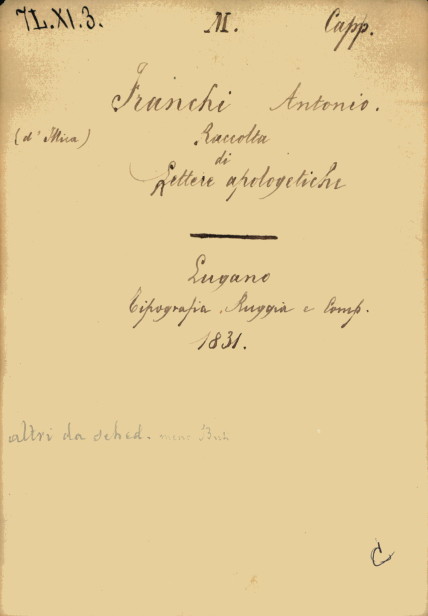 7L.XI.3. M. Capp.
Franchi Antonio.
(d'Mica) Raccolta
di
Lettere apologetiche
Lugano
Tipografia Ruggia e Comp.
1831.
altri da sched.
C